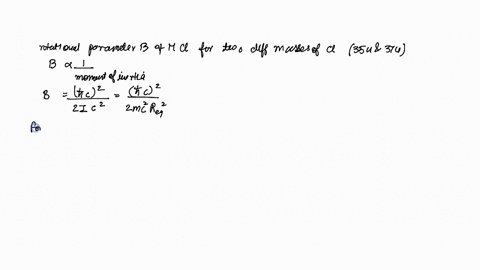 rotational parameter B of H Cl for two diff masses of Cl (35u & 37u)
B ∝ 1 / moment of inertia
B = (ħc)² / 2Ic² = (ħc)² / 2mc² Req²
For